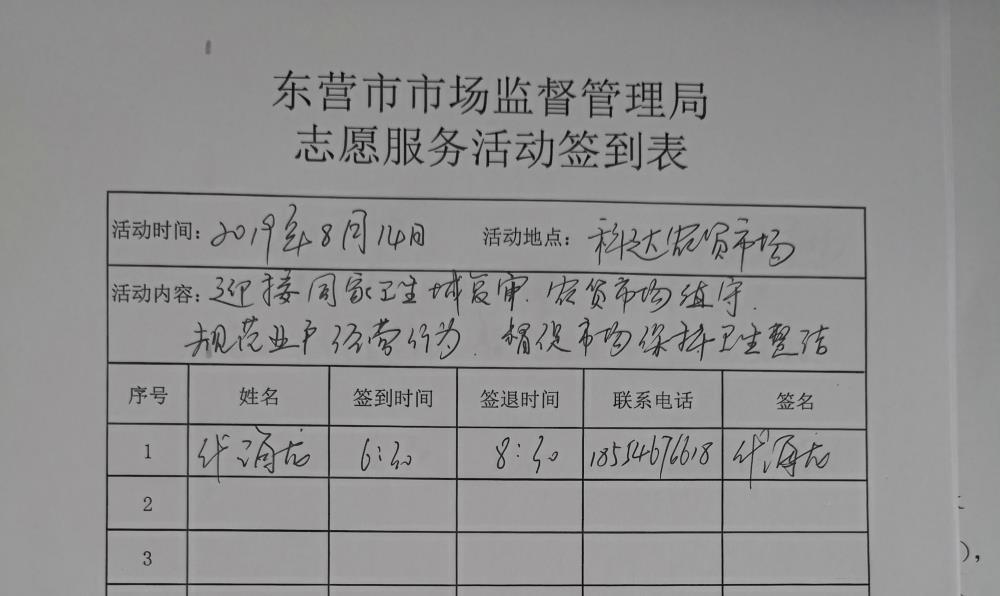 东营市市场监督管理局
志愿服务活动签到表
活动时间：2019年8月14日 活动地点：科达农贸市场
活动内容：迎接国家卫生城复审.农贸市场值守.
规范业户经营行为.督促市场保持卫生整洁
序号 姓名 签到时间 签退时间 联系电话 签名
1 代海龙 6:30 8:30 18554676618 代海龙
2
3